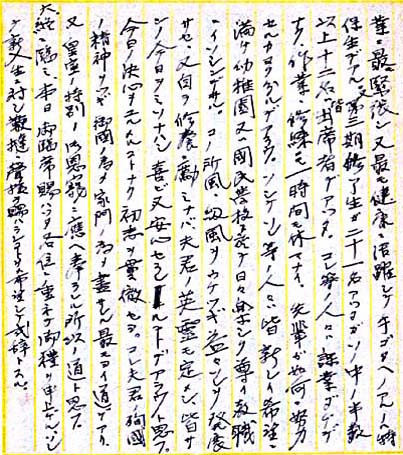 業ニ最モ緊張シ又最モ健康ニ活躍シテ手ゴタヘノアルハ特
保生デアル。又第三期修了生ガ二十一名アツタガソノ中ノ半数
以上十二名ハ皆出席者デアツタ。コレ等ノ人々ハ課業ダケデ
ナク、作業ニ修練ニ一時間モ休マナイ。先輩ガ如何ニ努力
セルカヨクワカルデアラウ。ソシテコレ等ノ人々ハ皆新シイ希望ニ
満チ幼稚園又ハ国民学校ニ於テ日々楽シク尊イ教職
ニイソシンデ居ル。コノ所風、級風ヲウケツギ益々コレヲ発展
サセ、又自ラ修養ニ勵ミナバ夫君ノ英霊モ定メシ、皆サ
ンノ今日ヲミソナハシ喜ビ又安心セラレルコトデアラウト思フ。
今日ノ決心ヲユルメルコトナク初志ヲ貫徹セヨ。コレ夫君ノ殉国
ノ精神ヲツギ御國ノ為メ家門ノ為メ盡ス最モヨイ道デアリ、
又 皇室ノ特別ノ御恩寵ニ應ヘ奉ル所以ノ道ト思フ。
終ニ臨ミ、本日御臨席賜ハツタ各位ニ重ネテ御禮ヲ申上ゲルト共
ニ新入生ニ対シ教鞭聲援ヲ賜ハランコトヲ希望シテ式辞トスル。